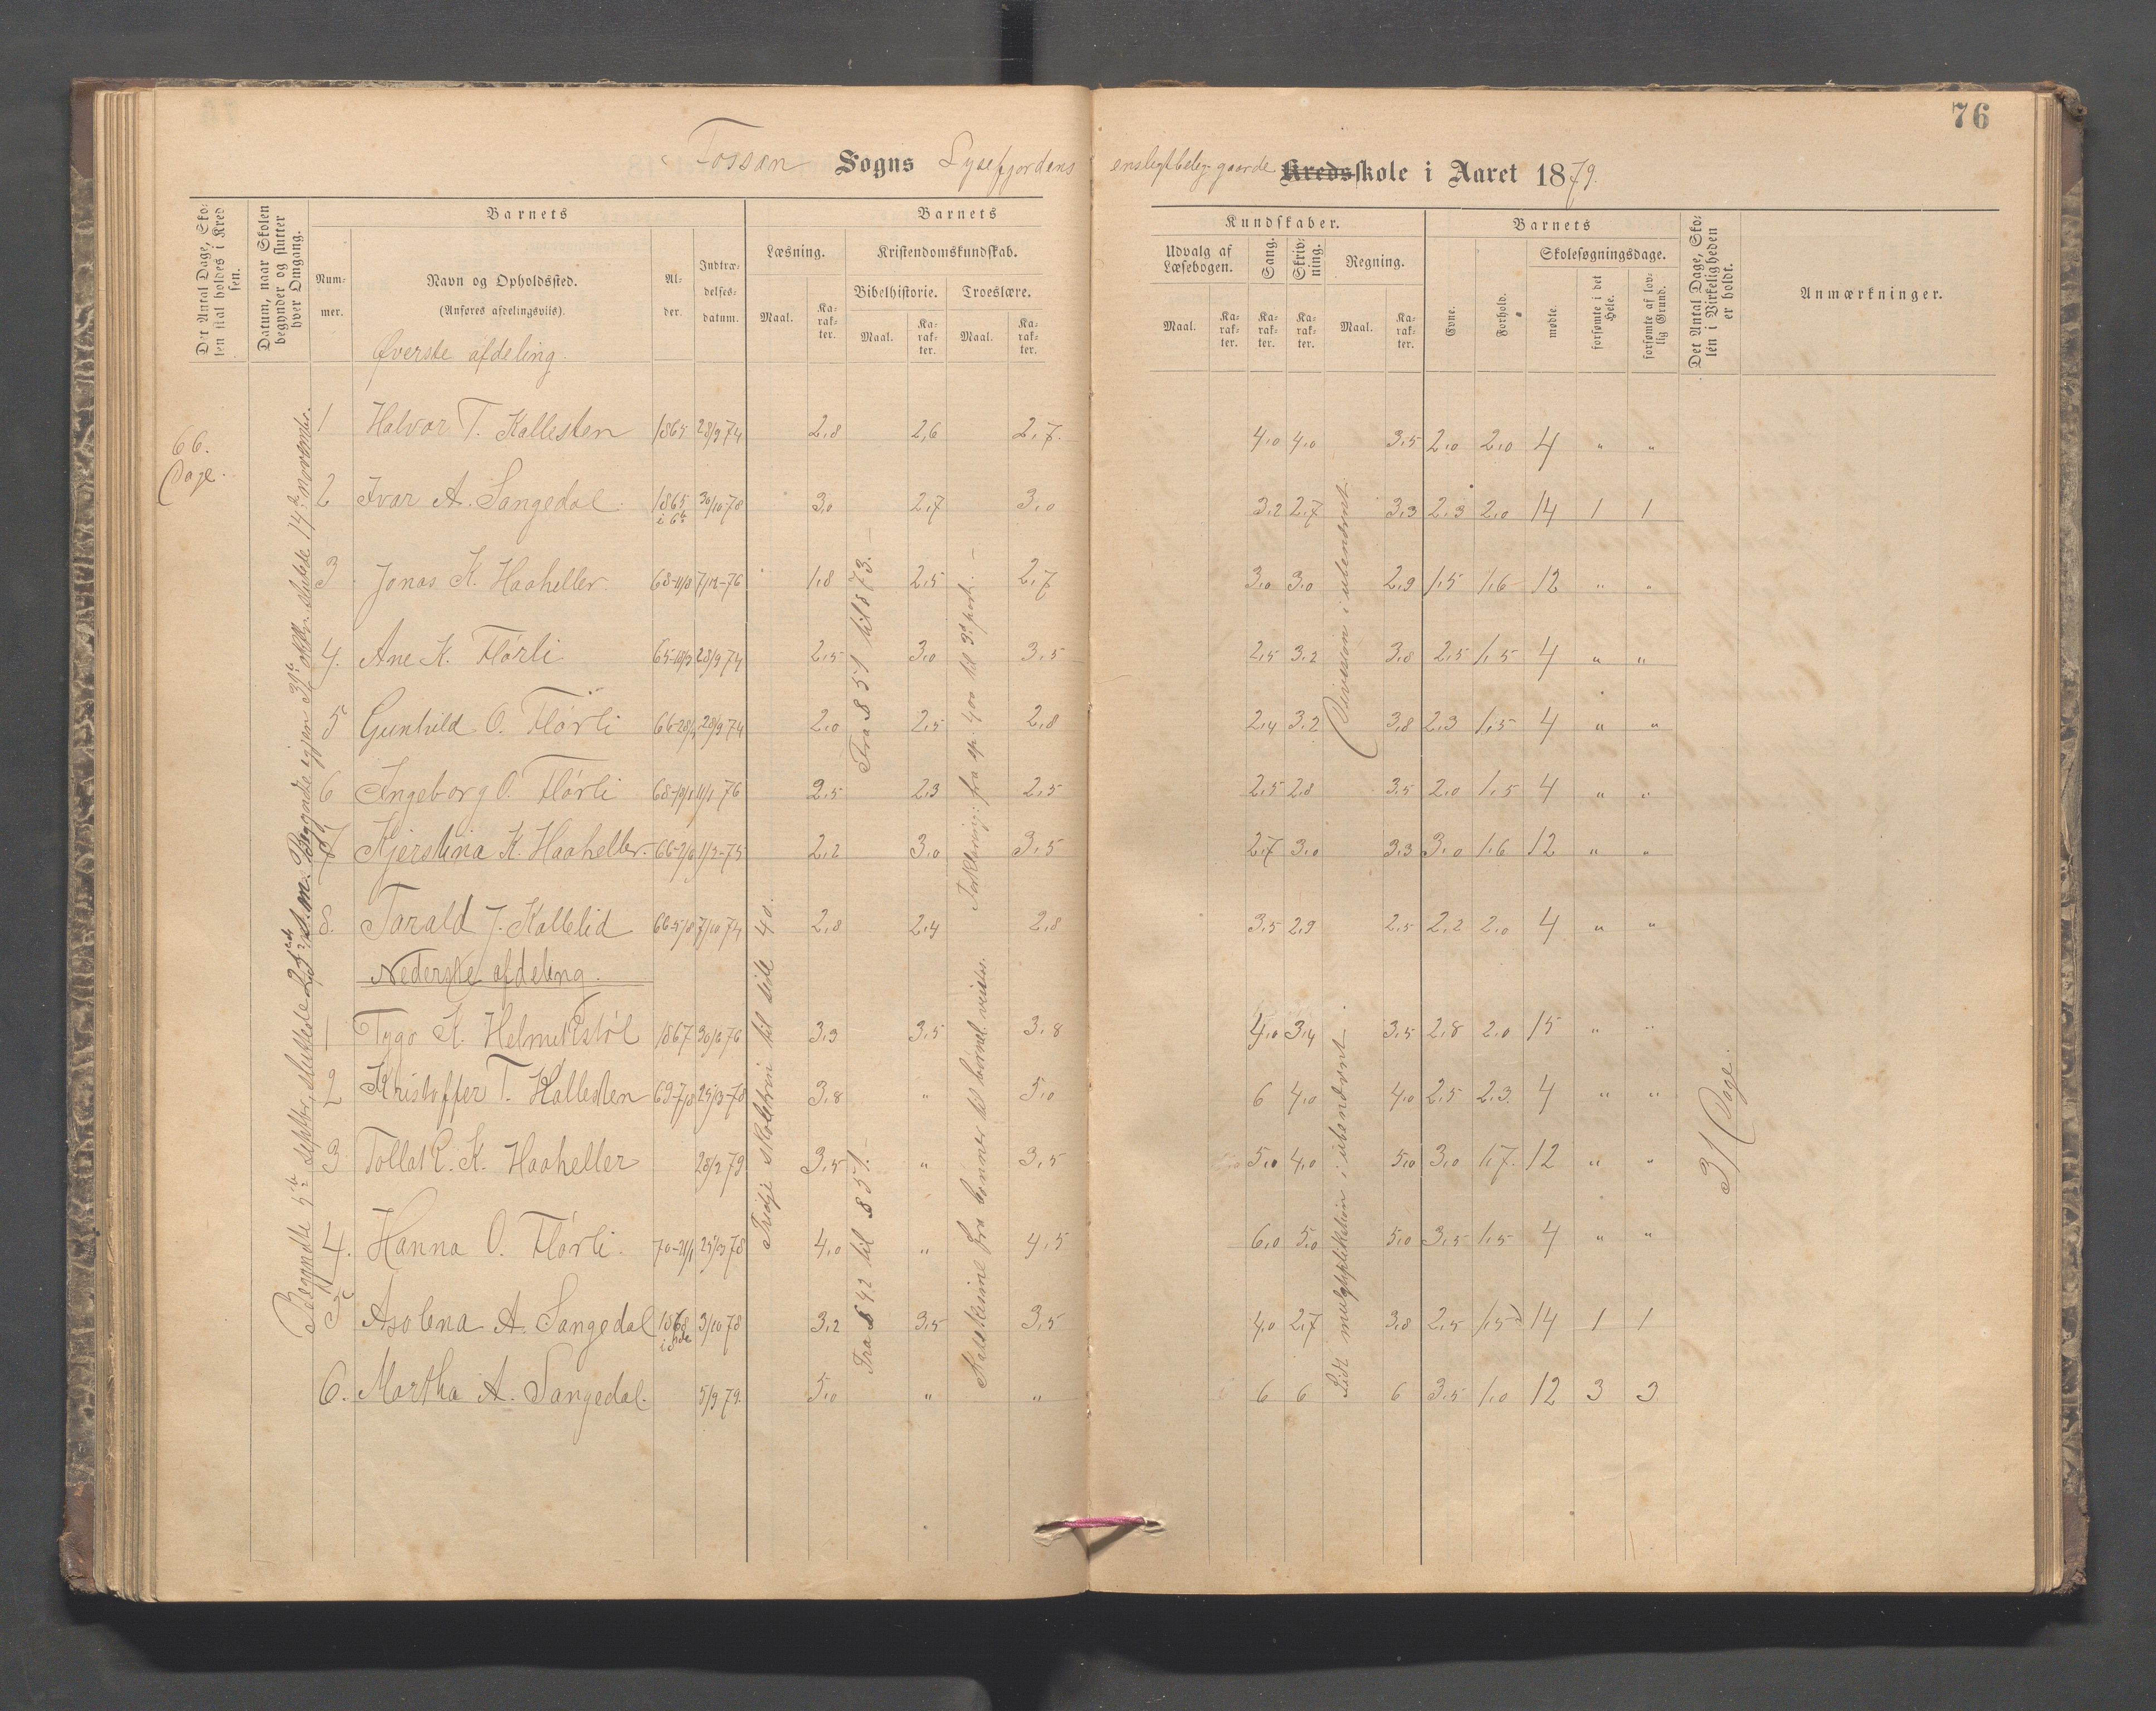 76
Fossan Sogns Lysefjordens ensligtbelig. gaarde Kredsskole i Aaret 1879.
Det Antal Dage, Skolen skal holdes i Kredsen.
Datum, naar Skolen begynder og slutter hver Omgang.
Barnets
Nummer.
Navn og Opholdssted.
(Anføres afdelingsviis).
Alder.
Indtrædelsesdatum.
Barnets Kundskaber.
Læsning.
Maal. Karakter.
Kristendomskundskab.
Bibelhistorie. Troeslære.
Maal. Karakter. Maal. Karakter.
Udvalg af Læsebogen.
Maal. Karakter.
Sang. Karakter.
Skrivning. Karakter.
Regning.
Maal. Karakter.
Barnets
Evne. Forhold.
Skolesøgningsdage.
mødte. forsømte i det Hele. forsømte af lovlig Grund.
Det Antal Dage, Skolen i Virkeligheden er holdt.
Anmærkninger.
Øverste afdeling.
66. Dage.
1 Halvor T. Kallesten 1865 28/9 74 2,8 2,6 2,7. 4,0 4,0 3,5 2,0 2,0 4 " "
2 Ivar A. Sangedal 1865 30/10 78 3,0 2,7 3,0 3,2 2,7 3,3 2,3 2,0 14 1 1
3 Jonas K. Haaheller. 68-11/8 7/12-76 1,8 2,5 2,7 3,0 3,0 2,9 1,5 1,6 12 " "
4. Ane K. Flørli 65-18/3 28/9 74 2,5 3,0 3,5 2,5 3,2 3,8 2,5 1,5 4 " "
5 Gunhild O. Flørli 66-28/4 28/9 74 2,0 2,5 2,8 2,4 3,2 3,8 2,3 1,5 4 " "
6 Ingeborg O. Flørli 68-13/1 11/1 76 2,5 2,3 2,5 2,5 2,8 3,5 2,0 1,5 4 " "
7 Kjerstina K. Haaheller. 66-2/6 1/2-75 2,2 3,0 3,5 2,7 3,0 3,3 3,0 1,6 12 " "
8. Tarald J. Kallelid 66-5/8 7/10 74 2,8 2,4 2,8 3,5 2,9 2,5 2,2 2,0 4 " "
Nederste afdeling.
1 Tygo K. Helmikstøl 1867 30/6 76 3,3 3,5 3,8 4,0 3,4 3,5 2,8 2,0 15 " "
2 Kristoffer T. Kallesten 69-7/8 25/3-78 3,8 " 5,0 6 4,0 4,0 2,5 2,3. 4 " "
3 Tollak. K. Haaheller 28/2 79 3,5 " 3,5 5,0 4,0 5,0 3,0 1,7. 12 " "
4. Hanna O. Flørli. 70-21/1 25/3 78 4,0 " 4,5 6,0 5,0 5,0 3,5 1,5 4 " "
5 Asolena A. Sangedal 1868 3/10 78 3,2 3,5 3,5 4,0 2,7 3,8 2,5 1,5 14 1 1
6. Martha A. Sangedal. 5/9 79. 5,0 " " 6 6 6 3,5 1,0 12 3 3
Begyndte 5te septbr, sluttede 25de s. m. Begyndte igjen 31te oktbr. sluttede 14de novembr.
Tredje skoletrin til side 40.
Fra § 51 til § 73.
Fra § 42 til § 51.
Forklaring: fra sp. 400 til 3d part.
Division i ubenævnt.
Lidt multiplikation i ubenævnt.
31 Dage.